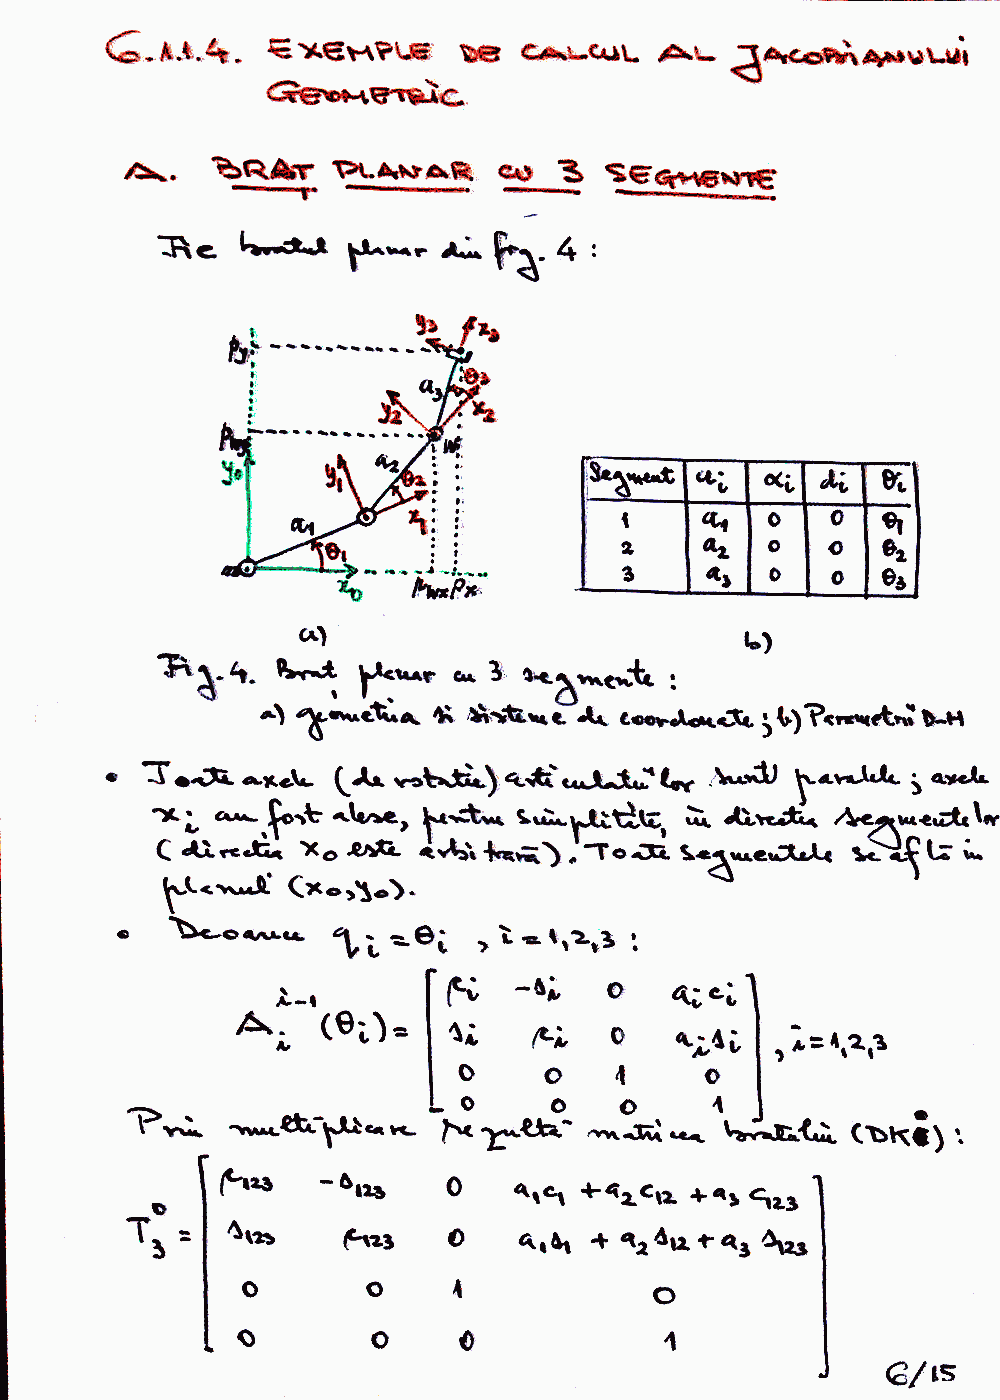 6.1.1.4. EXEMPLE DE CALCUL AL JACOBIANULUI
GEOMETRIC
A. BRAȚ PLANAR CU 3 SEGMENTE
Fie brațul planar din fig. 4 :
y3 x3
py
a3 θ3
y2 x2
pwy W
y0 y1 a2 θ2
a1 x1
θ1
x0 pwx px
Segment ai αi di θi
1 a1 0 0 θ1
2 a2 0 0 θ2
3 a3 0 0 θ3
a) b)
Fig. 4. Braț planar cu 3 segmente :
a) geometria si sisteme de coordonate ; b) Parametrii D-H
• Toate axele (de rotatie) articulatiilor sunt paralele ; axele
xi au fost alese, pentru simplitate, in directia segmentelor
(directia x0 este arbitrară). Toate segmentele se află in
planul (x0,y0).
• Deoarece qi = θi , i = 1,2,3 :
ci -si 0 aici
A i-1 i (θi) = si ci 0 aisi , i = 1,2,3
0 0 1 0
0 0 0 1
Prin multiplicare rezultă matricea brațului (DK) :
c123 -s123 0 a1c1 + a2c12 + a3c123
T 0 3 = s123 c123 0 a1s1 + a2s12 + a3s123
0 0 1 0
0 0 0 1
6/15